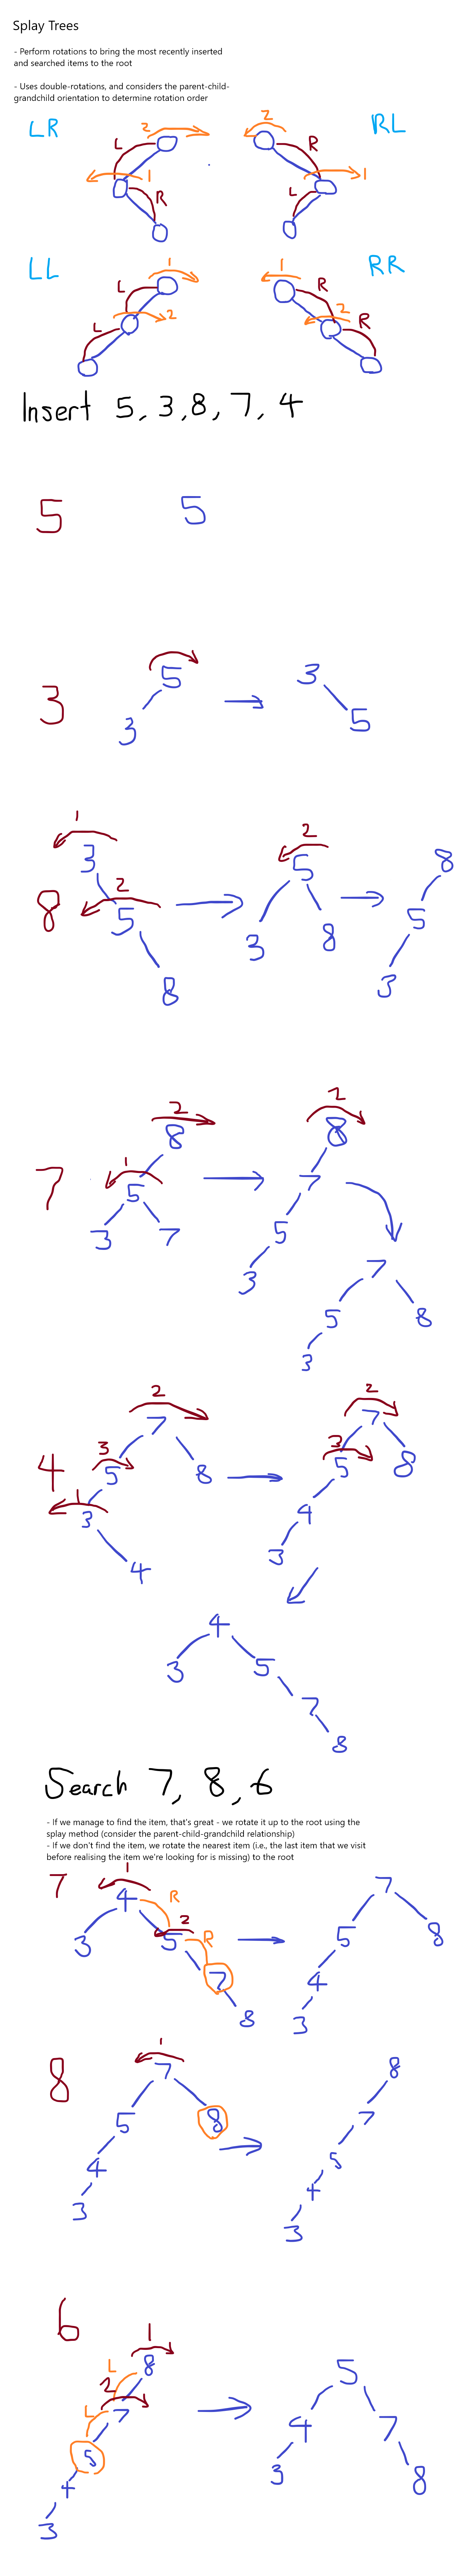 Splay Trees
- Perform rotations to bring the most recently inserted
and searched items to the root
- Uses double-rotations, and considers the parent-child-
grandchild orientation to determine rotation order
LR 2 L 1 R
2 R L 1 RL
LL 1 L 2 L
1 R 2 R RR
Insert 5, 3, 8, 7, 4
5 5
3 5 3
3 5
1 2
3 5 8
8 2 5 5
8 3 8 3
2 2
8 8
7 1 5 7
3 7 5
3 7
5 8
3
2 2
7 7
4 3 5 8 3 5 8
1 3 4
4 3
4
3 5
7
8
Search 7, 8, 6
- If we manage to find the item, that's great - we rotate it up to the root using the
splay method (consider the parent-child-grandchild relationship)
- If we don't find the item, we rotate the nearest item (i.e., the last item that we visit
before realising the item we're looking for is missing) to the root
1
7 4 R 7
3 5 2 R 5 8
7 4
8 3
1
8 7 8
5 8 7
4 5
3 4
3
6 1
L 8 5
2
L 7 4 7
5 3 8
4
3